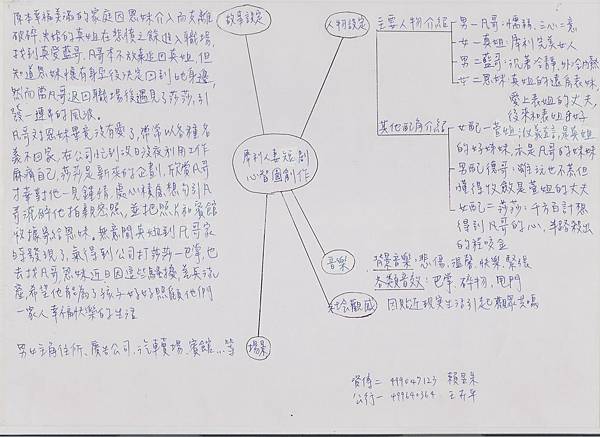 故事設定
原本幸福美滿的家庭因思妹介入而支離
破碎,失婚的真姐在悲憤之餘進入職場,
找到真愛藍哥。凡哥本不放棄追回真姐,但
知道思妹懷有身孕後決定回到她身邊,
然而當凡哥返回職場後遇見了莎莎,引
發一連串的風波。
凡哥對思妹畢竟沒有愛了,常常以各種名
義不回家,在公司忙到沒日沒夜利用工作
麻痺自己,莎莎是新來的企劃,欣賞凡哥
才華對他一見鍾情,處心積慮想勾引凡
哥,
並把照片和賓館
收據寄給思妹。無意間真姐到凡哥家
時發現了,氣得到公司打莎莎一巴掌,也
去找凡哥,思妹近日因這些騷擾差點流
產,希望他能為了孩子好好照顧他們
一家人幸福快樂的生活
男女主角住所、廣告公司、汽車賣場、賓館...等
場景
犀利人妻短劇
心智圖創作
人物設定
主要人物介紹
男一凡哥:懦弱,三心二意
女一真姐:犀利完美女人
男二藍哥:沉著冷靜,外冷內熱
女二思妹:真姐的遠房表妹,
愛上表姐的丈夫,
後來和表姐和好
其他配角介紹
女配一萱姐:
是真姐
的好姊妹,亦是凡哥的妹妹
男配德哥:雖玩世不恭但
懂得收斂是萱姐的丈夫
女配二莎莎:千方百計想
得到凡哥的心,半路殺出
的程咬金
音樂
背景音樂:悲傷,溫馨,快樂,緊張
各類音效:巴掌,碎物,甩門
社會觀感
因貼近現實生活引起觀眾共鳴
資傳二 499047123 賴昱
公行一 499640364 王